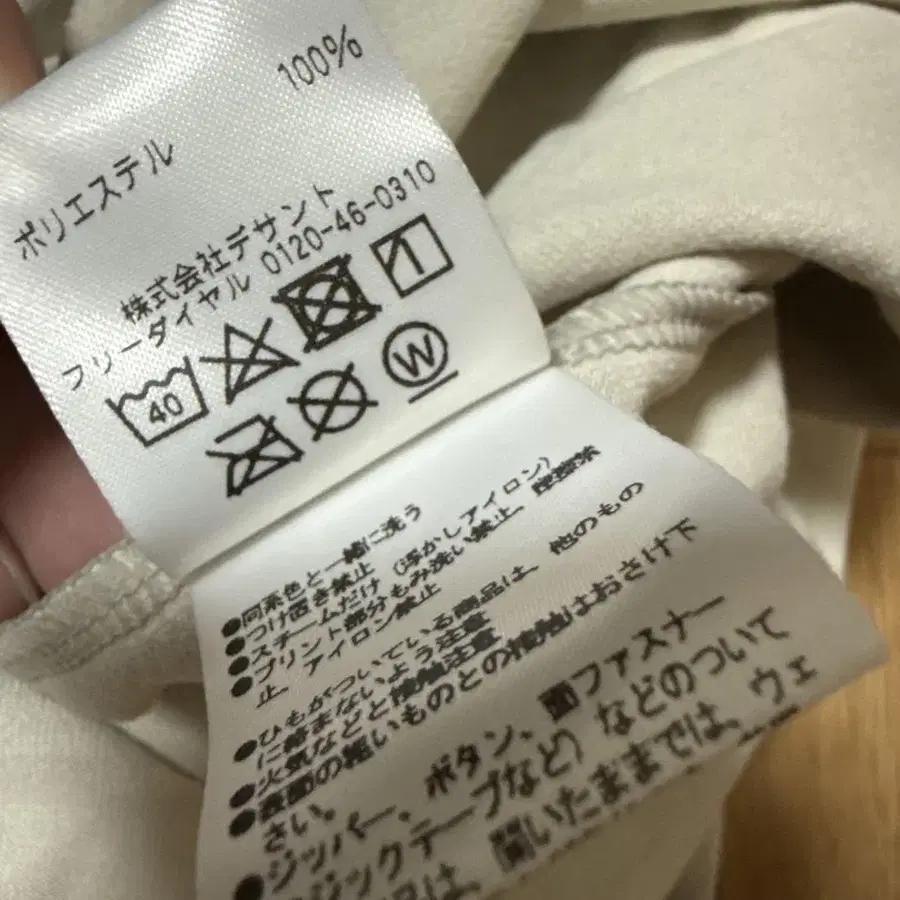 ポリエステル 100%
株式会社デサント
フリーダイヤル 0120-46-0310
40
1
W
●同系色と一緒に洗う
●つけ置き禁止
●スチームだけ(浮かしアイロン)
●プリント部分もみ洗い禁止、摩擦禁
止、アイロン禁止
●ひもがついている商品は、他のもの
に絡まないよう注意
●火気などと接触注意
●表面の粗いものとの接触はおさけ下
さい。
●ジッパー、ボタン、面ファスナー
ジックテープなど)などのついて
は、開いたままでは、ウェ